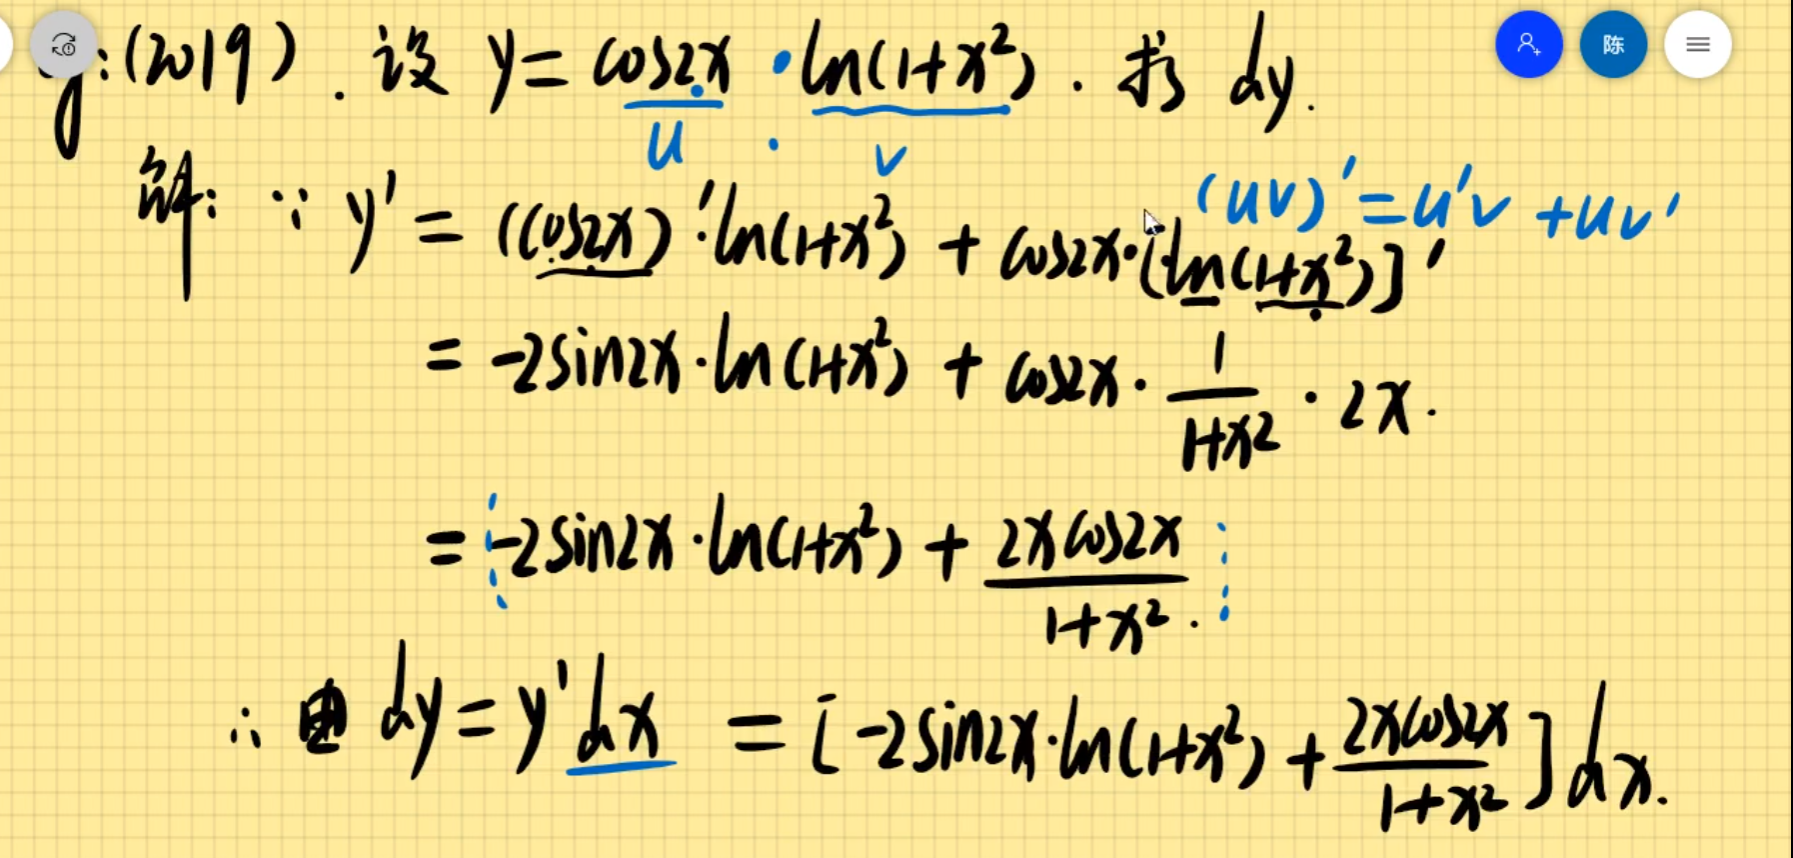 g:(2019). 设 y = cos2x · ln(1+x²). 求 dy.
u · v
(uv)' = u'v + uv'
解: ∵ y' = (cos2x)'·ln(1+x²) + cos2x·[ln(1+x²)]'
= -2sin2x·ln(1+x²) + cos2x · 1/(1+x²) · 2x.
= -2sin2x·ln(1+x²) + 2xcos2x/(1+x²).
∴ dy = y'dx = [-2sin2x·ln(1+x²) + 2xcos2x/(1+x²)]dx.
陈